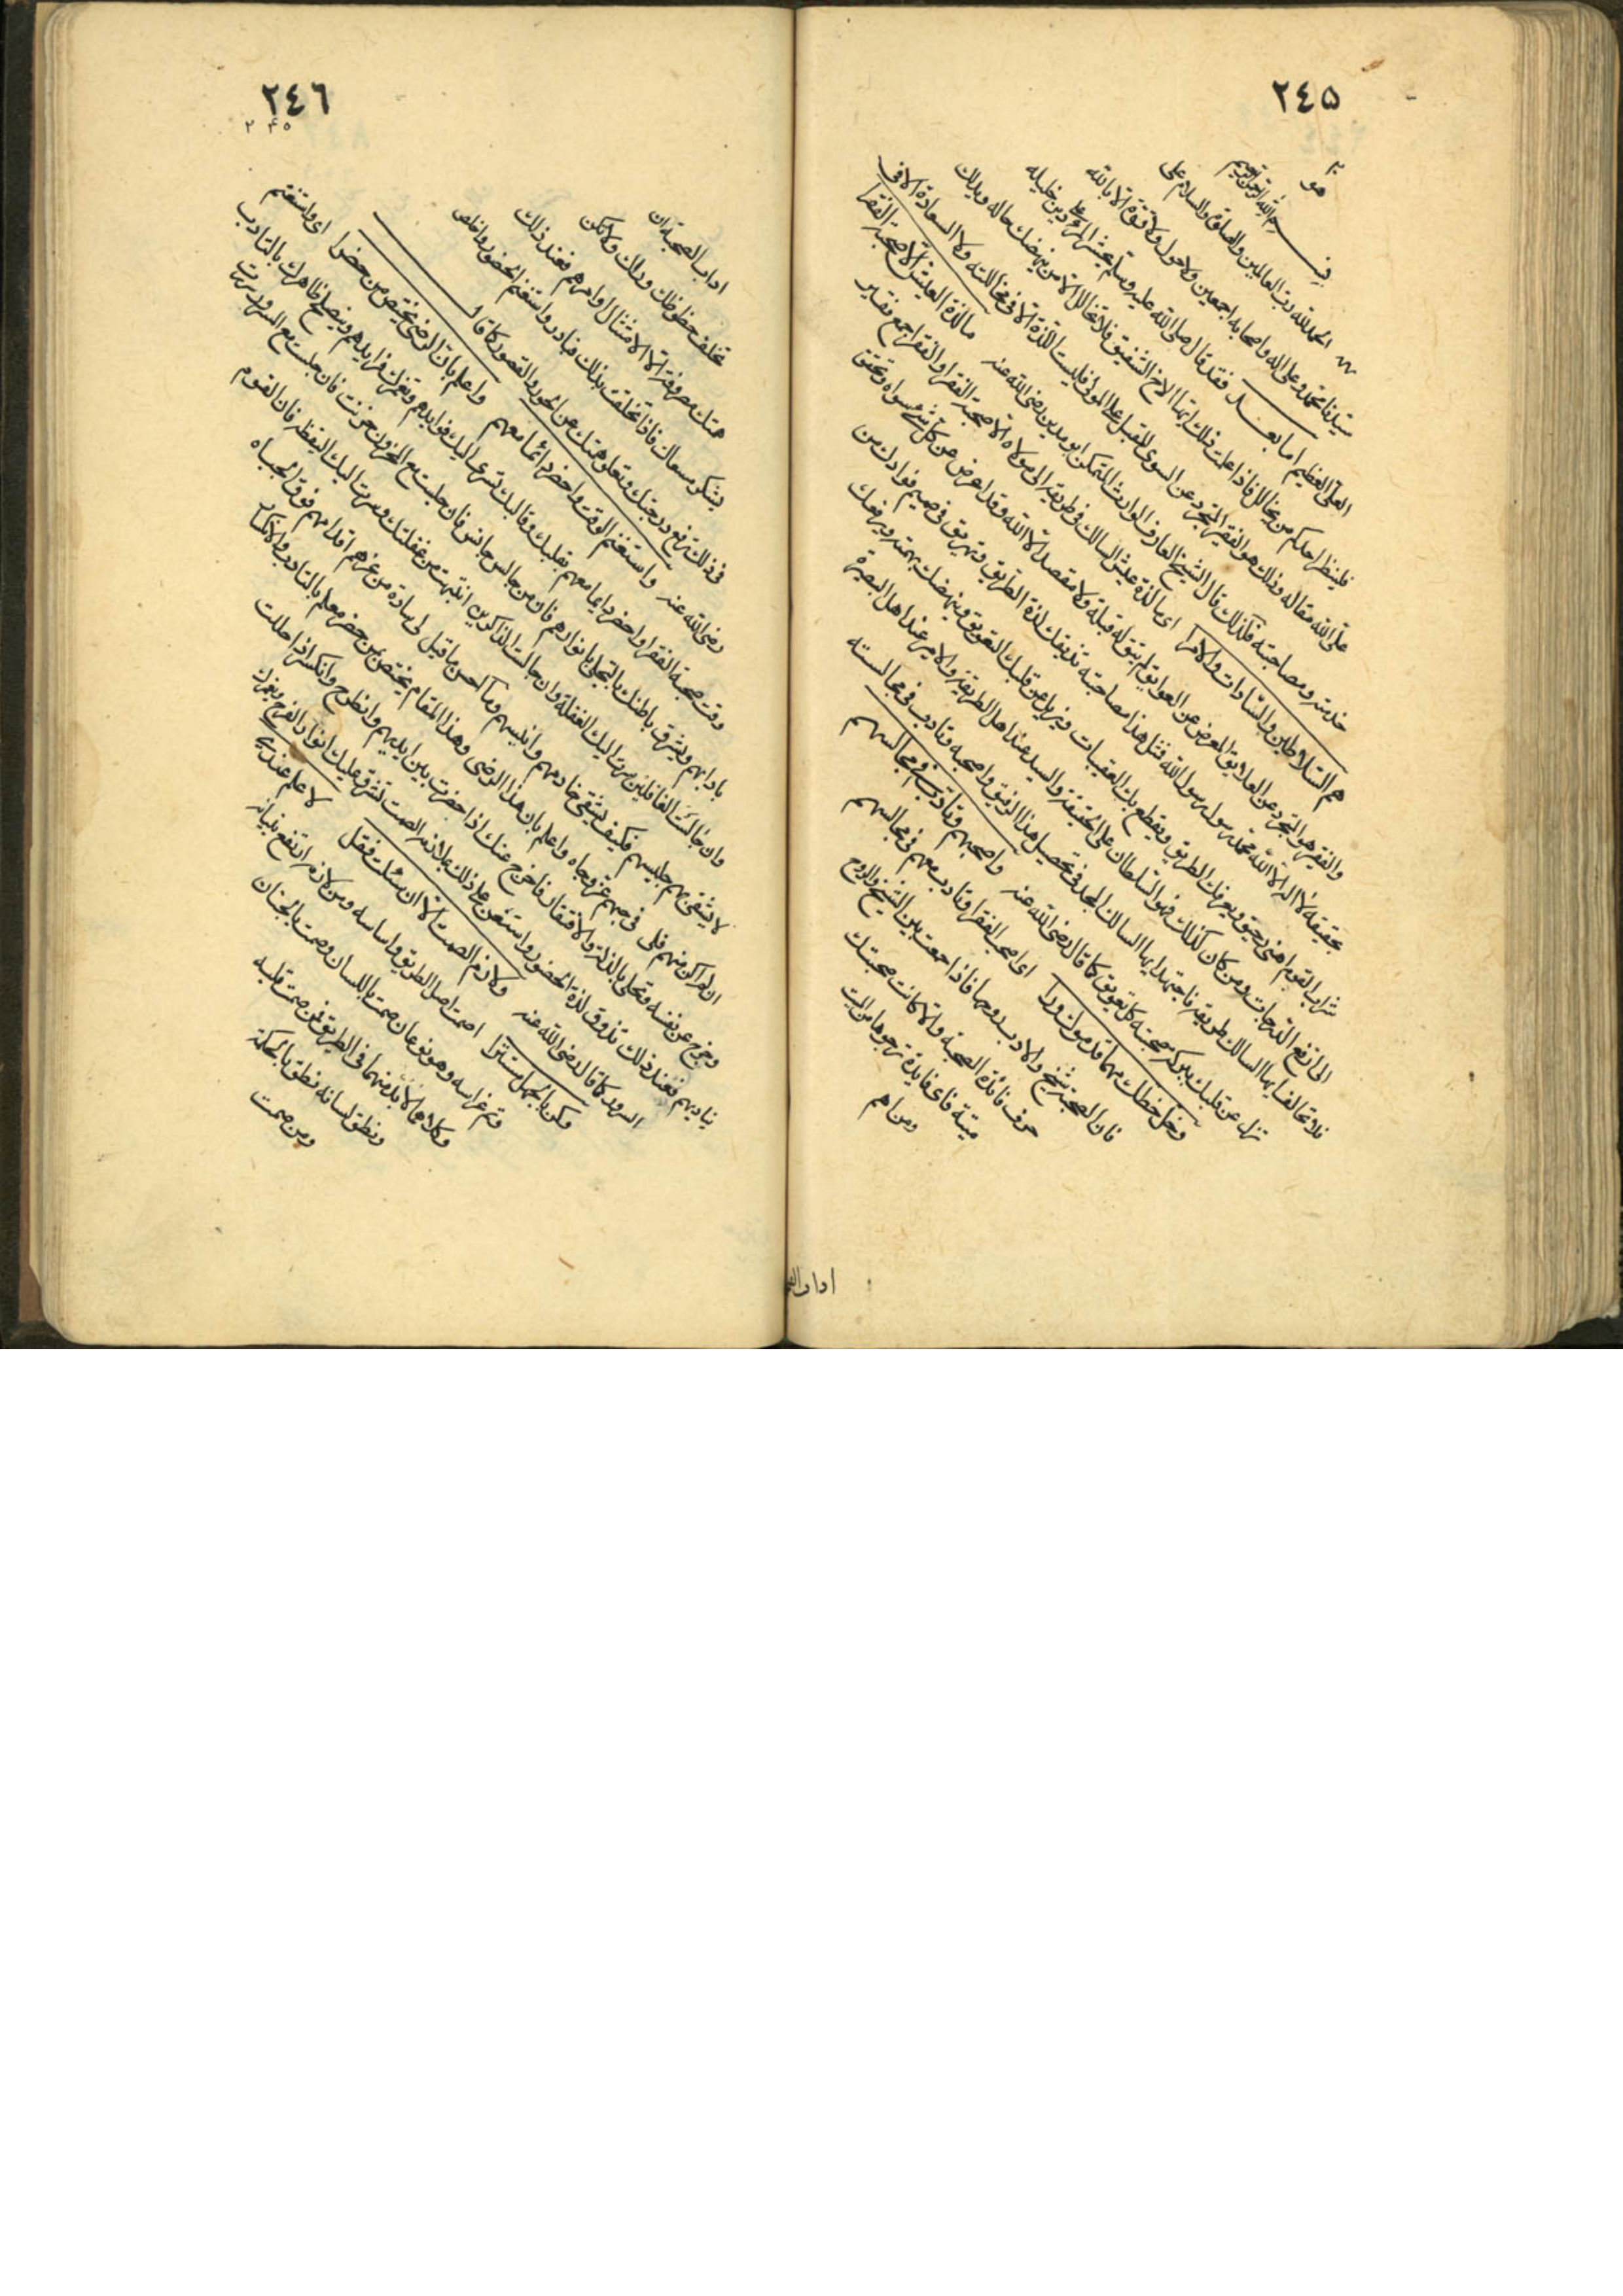 ٢٤٥
هو
بسم الله الرحمن الرحيم
الحمد لله رب العالمين والصلوة والسلام على
سيدنا محمد وعلى اله واصحابه اجمعين ولا حول ولا قوة الا بالله
العلى العظيم اما بعد فقد قال صلى الله عليه وسلم يحشر المرء على دين خليله
فلينظر احدكم من يخالل فاذا علمت ذلك ايها الاخ الشفيق فلا تخالل الا من ينهضك حاله ويدلك
على الله مقاله وذلك هو الفقير المتجرد عن السوى المقبل على المولى فليست اللذة الا فى مخاللته ولا السعادة الا فى
خدمته ومصاحبته فكذلك قال الشيخ العارف الوارث المتمكن ابو مدين رضى الله عنه ما لذة العيش الا صحبة الفقرا
هم السلاطين والسادات والامرا اى ما لذة عيش السالك فى طريقه الى مولاه الا صحبة الفقرا والفقرا جمع فقير
والفقير هو المتجرد عن العلايق المعرض عن العوايق لم يبق له قبلة ولا مقصد الا الله وقد اعرض عن كل شئ سواه وتحقق
بحقيقة لا اله الا الله محمد رسول الله فمثل هذا مصاحبته تذيقك لذة الطريق وتهريق فى صميم فوادك من
شراب القوم اهنى رحيق ويعرفك الطريق ويقطع بك العقبات ويزيل عن قلبك التعويق وينهضك بهمته ويرفعك
الى ارفع الدرجات ومن كان كذلك فهو السلطان على الحقيقة والسيد عند اهل الطريقة والامير عند اهل البصيرة
فلا تخالف ايها السالك طريقه فاجتهد ايها السالك المجد فى تحصيل هذا الرفيق واصحبه وتادب فى مجالسته
تزل عن قلبك ببركة صحبته كل تعويق كما قال رضى الله عنه واصحبهم وتأدب فى مجالسهم
وخل حظك مهما قدموك ورا اى اصحب الفقرا وتادب معهم فى مجالسهم
فان الصحبة شبح والادب روحها فاذا جمعت بين الشبح والروح
حزت فائدة الصحبة والا كانت صحبتك
ميتة فاى فايدة ترجوها من الميت
ومن اهم
٢٤٦
٢٤٥
اداب الصحبة ان
تخلف حظوظك وراك ولا تكن
همتك مصروفة الا لامتثال اوامرهم فعند ذلك
يشكر مسعاك فاذا تخلقت بذلك فبادر واستغنم الحضور واخلص
فى ذلك ترفع درجتك وتعلو همتك عن الحور والقصور كما قال
رضى الله عنه واستغنم الوقت واحضر دائما معهم واعلم بان الرضى يختص من حضرا اى واستغنم
وقت صحبة الفقرا واحضر دايما معهم بقلبك وقالبك تسرى اليك فوايدهم وتغمرك فرايدهم وينصلح ظاهرك بالتادب
بادابهم ويشرق باطنك بالتحلى بانوارهم فان من جالس جانس فان جلست مع المحزون حزنت فان جلست مع المسرور سررت
وان جالست الغافلين سرت اليك الغفلة وان جالست الذاكرين انتبهت من غفلتك وسرت اليك اليقظة فان القوم
لا يشقى بهم جليسهم فكيف يشقى خادمهم وانيسهم وما احسن ما قيل لى سادة من عزهم اقدامهم فوق الجباه
ان لم اكن منهم فلى فى حبهم عز وجاه واعلم بان هذا الرضى وهذا المقام يختص بمن حضر معهم بالتادب والانكسار
وخرج عن نفسه وتحلى بالذلة والافتقار فاخرج عنك اذا حضرت بين ايديهم وانطرح وانكسر اذا حللت
بناديهم فعند ذلك تذوق لذة الحضور واستعن على ذلك بملازمة الصمت تشرق عليك انوار الفرح ويغمرك
السرور كما قال رضى الله عنه ولازم الصمت الا ان سئلت فقل لا علم عندى
وكن بالجهل مستترا الصمت اصل الطريق واساسه ومن لازمه ارتفع بنيانه
وتم غراسه وهو نوعان صمت باللسان وصمت بالجنان
وكلاهما لابد منهما فى الطريق فمن صمت قلبه
ونطق لسانه نطق بالحكمة
ومن صمت